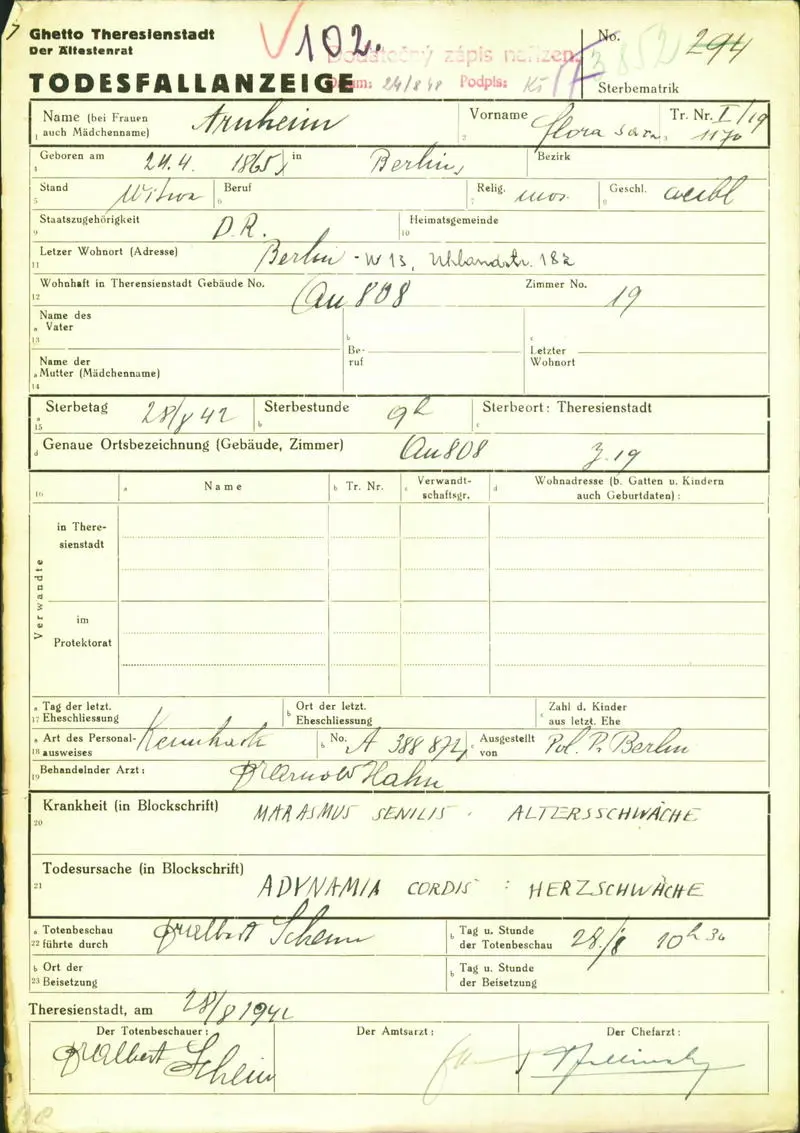 Ghetto Theresienstadt
Der Ältestenrat
102.
Dodatečný zápis nařízen.
Datum: 24/8 48 Podpis:
No. 294
TODESFALLANZEIGE
Sterbematrik
Name (bei Frauen auch Mädchenname) Arnheim
1
Vorname Flora Sara,
2
Tr. Nr. I/19
1170
Geboren am 24.4. 1865, in Berlin,
4
Bezirk
Stand Witwe
5
Beruf
6
Relig. mos.
7
Geschl. weibl
8
Staatszugehörigkeit D.R.
9
Heimatsgemeinde
10
Letzer Wohnort (Adresse) Berlin - W 15, Uhlandstr. 182
11
Wohnhaft in Therensienstadt Gebäude No. Au 808
12
Zimmer No. 19
Name des
a Vater
13
b
Beruf
c
Letzter
Wohnort
Name der
a Mutter (Mädchenname)
14
Sterbetag 28/8 42
a
15
Sterbestunde 9h
b
Sterbeort: Theresienstadt
c
d Genaue Ortsbezeichnung (Gebäude, Zimmer) Au 808 Z. 19
16
a Name
b Tr. Nr.
c Verwandtschaftsgr.
d Wohnadresse (b. Gatten u. Kindern
auch Geburtdaten):
Verwandte
in Theresienstadt
im
Protektorat
a Tag der letzt.
17 Eheschliessung
b Ort der letzt.
Eheschliessung
c Zahl d. Kinder
aus letzt. Ehe
a Art des Personal-
18 ausweises Kennkarte
b No. A 388 872,
c Ausgestellt
von Pol. P. Berlin
Behandelnder Arzt: Dr Arnold Hahn
19
Krankheit (in Blockschrift) MARASMUS SENILIS. ALTERSSCHWÄCHE
20
Todesursache (in Blockschrift) ADYNAMIA CORDIS: HERZSCHWÄCHE
21
a Totenbeschau
22 führte durch Dr Albert Schein
b Tag u. Stunde
der Totenbeschau 28./8 10h 30
b Ort der
23 Beisetzung
b Tag u. Stunde
der Beisetzung
Theresienstadt, am 28/8 1942
Der Totenbeschauer:
Dr Albert Schein
Der Amtsarzt:
Der Chefarzt: